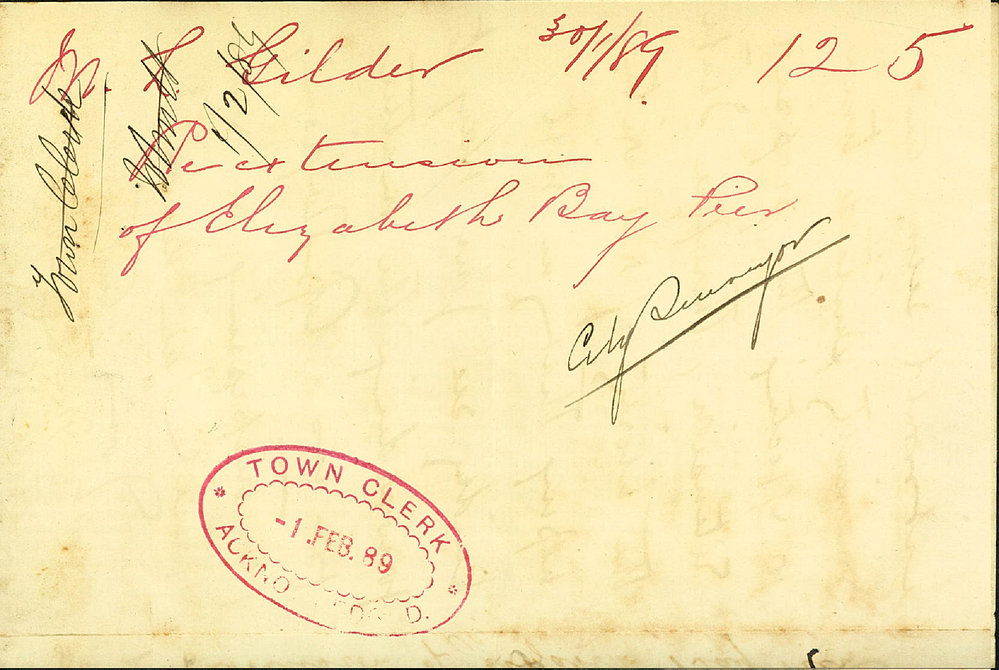 M. L Gilder 30/1/89. 125
Re extension
of Elizabeth Bay Pier
Town Clerk
1/2/89
City Surveyor
TOWN CLERK
-1. FEB. 89
ACKNOWLEDGED.